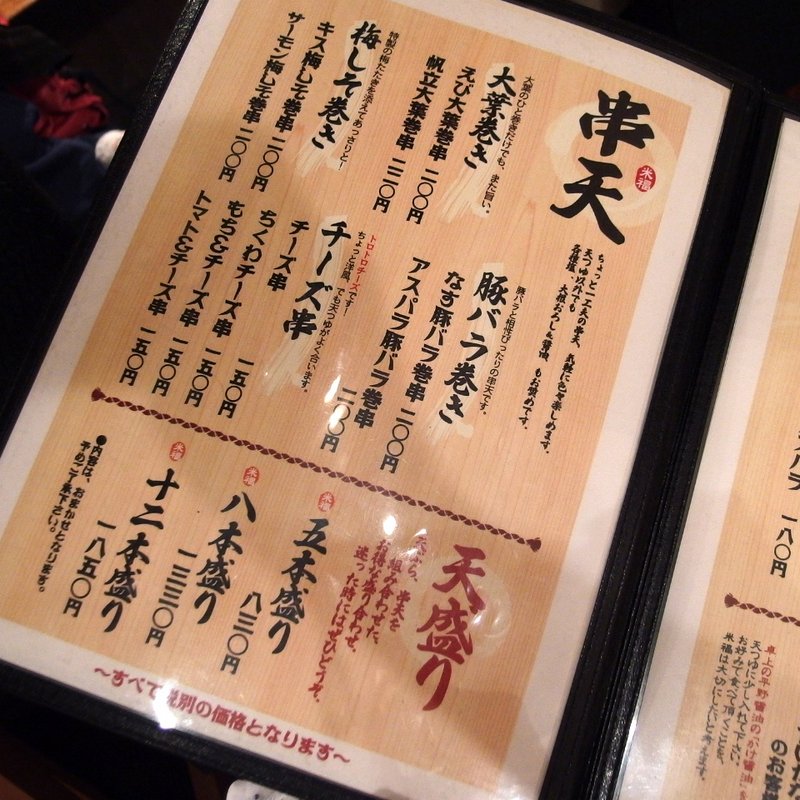 串天
米福
ちょっと一工夫の串天、気軽に色々楽しめます。
天つゆ以外でも
各種塩、大根おろし&醤油、もお奨めです。
大葉のひと巻きだけでも、また旨い。
大葉巻き
えび大葉巻串 二〇〇円
帆立大葉巻串 二二〇円
特製の梅たたきを添えてあっさりと!
梅しそ巻き
キス梅しそ巻串 二〇〇円
サーモン梅しそ巻串 二〇〇円
豚バラと相性ぴったりの串天です。
豚バラ巻き
なす豚バラ巻串 二〇〇円
アスパラ豚バラ巻串 二〇〇円
トロトロチーズです!
ちょっと洋風、でも天つゆがよく合います。
チーズ串
チーズ串 一五〇円
ちくわチーズ串 一五〇円
もち&チーズ串 一五〇円
トマト&チーズ串 一五〇円
天盛り
串天を
組み合わせた、
お得な盛り合わせ、
迷った時にはぜひどうぞ。
米福
五本盛り 八三〇円
米福
八本盛り 一三三〇円
米福
十二本盛り 一八五〇円
●内容は、おまかせとなります。
予めご了承下さい。
〜すべて税別の価格となります〜
バラ
一八〇円
卓上の平野醤油の「かけ醤油」を
天つゆに少し入れて下さい
お好みで食べて頂くことを、
米福は大切にしたいと考えます。